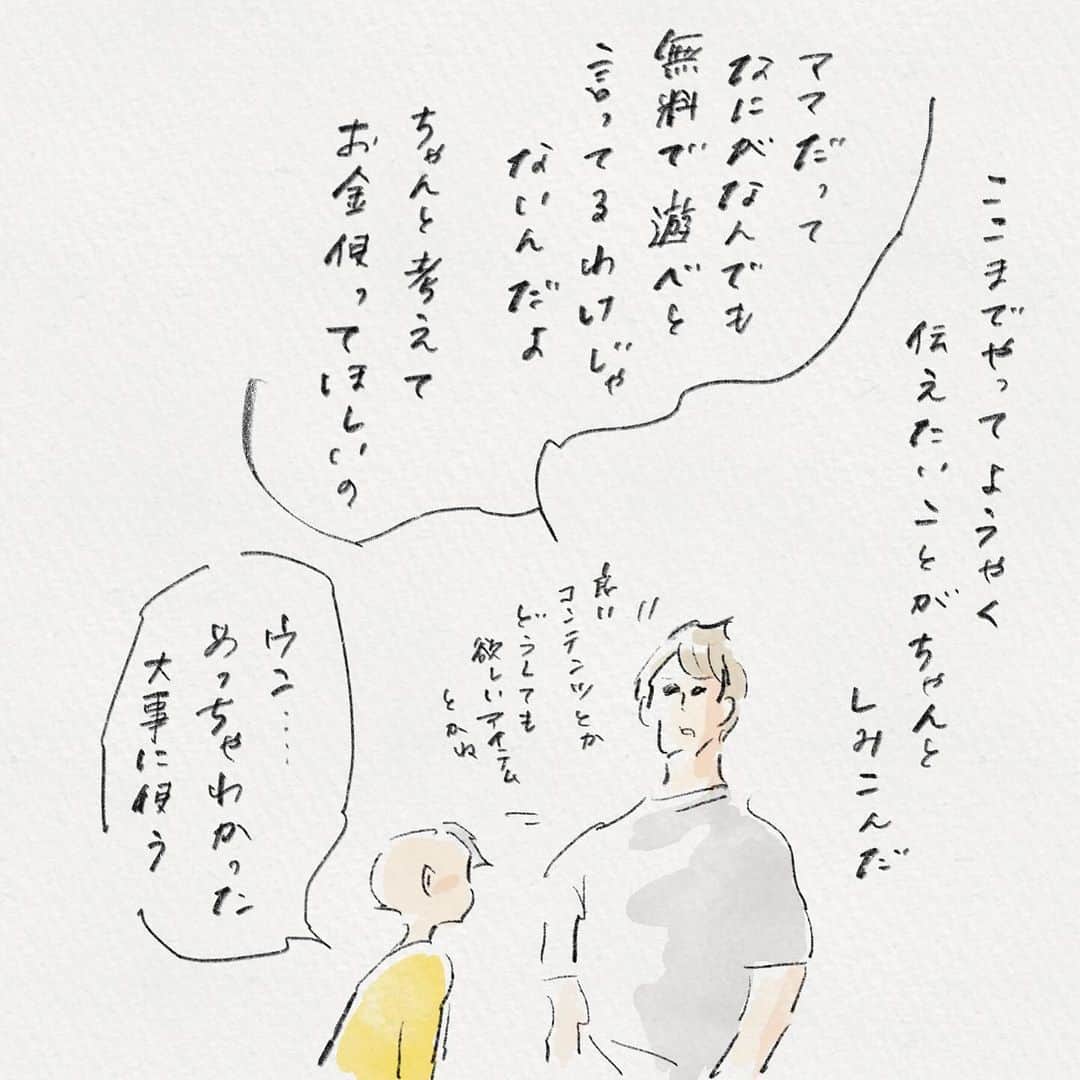 ここまでやってようやく
伝えたいことがちゃんと
しみこんだ
ママだって
なにがなんでも
無料で遊べと
言ってるわけじゃ
ないんだよ
ちゃんと考えて
お金使ってほしいの
良い
コンテンツとか
どうしても
欲しいアイテム
とかね
ウン....
めっちゃわかった
大事に使う